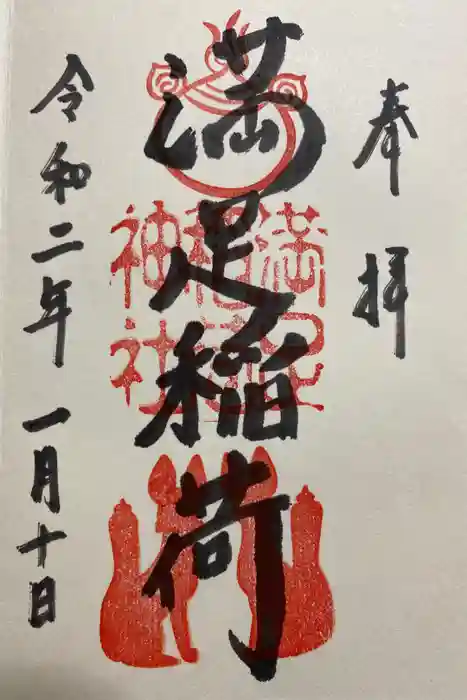 奉拝
満足稲荷
満足稲荷神社
令和二年一月十日